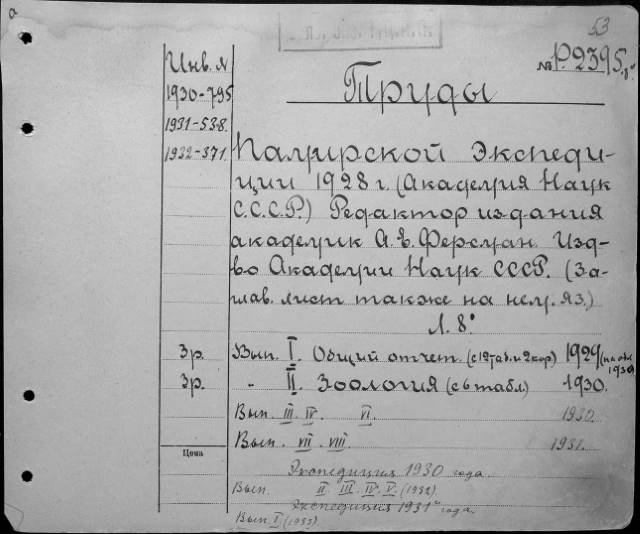 а
53
Инв. №
№ Р. 2395.8°
Труды
1930-795
1931-538.
1932-371.
Памирской Экспеди-
ции 1928 г. (Академия Наук
С.С.С.Р.) Редактор издания
академик А. Е. Ферсман. Изд-
во Академии Наук СССР. (За-
глав. лист также на нем. яз.)
Л. 8°
Зр. Вып. I. Общий отчет. (с 12 таб. и 2 кар) 1929 (на обл 1930)
Зр. - II. Зоология (с 6 табл) 1930.
Вып. III. IV. VI. 1930.
Вып. VII. VIII. 1931.
Цена
Экспедиция 1930 года.
Вып. II. III. IV. V. (1932)
Экспедиция 1931 года.
Вып. I (1933)